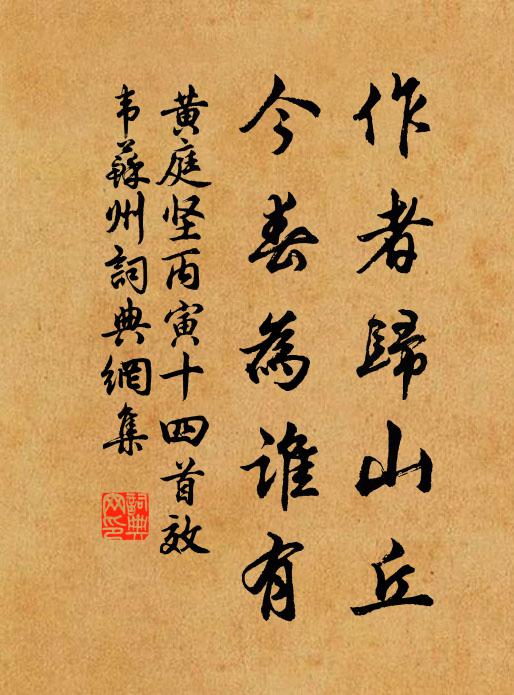 作者歸山丘
今春為谁有
黄庭坚丙寅十四首效
韦蘇州詞典網集
詞典